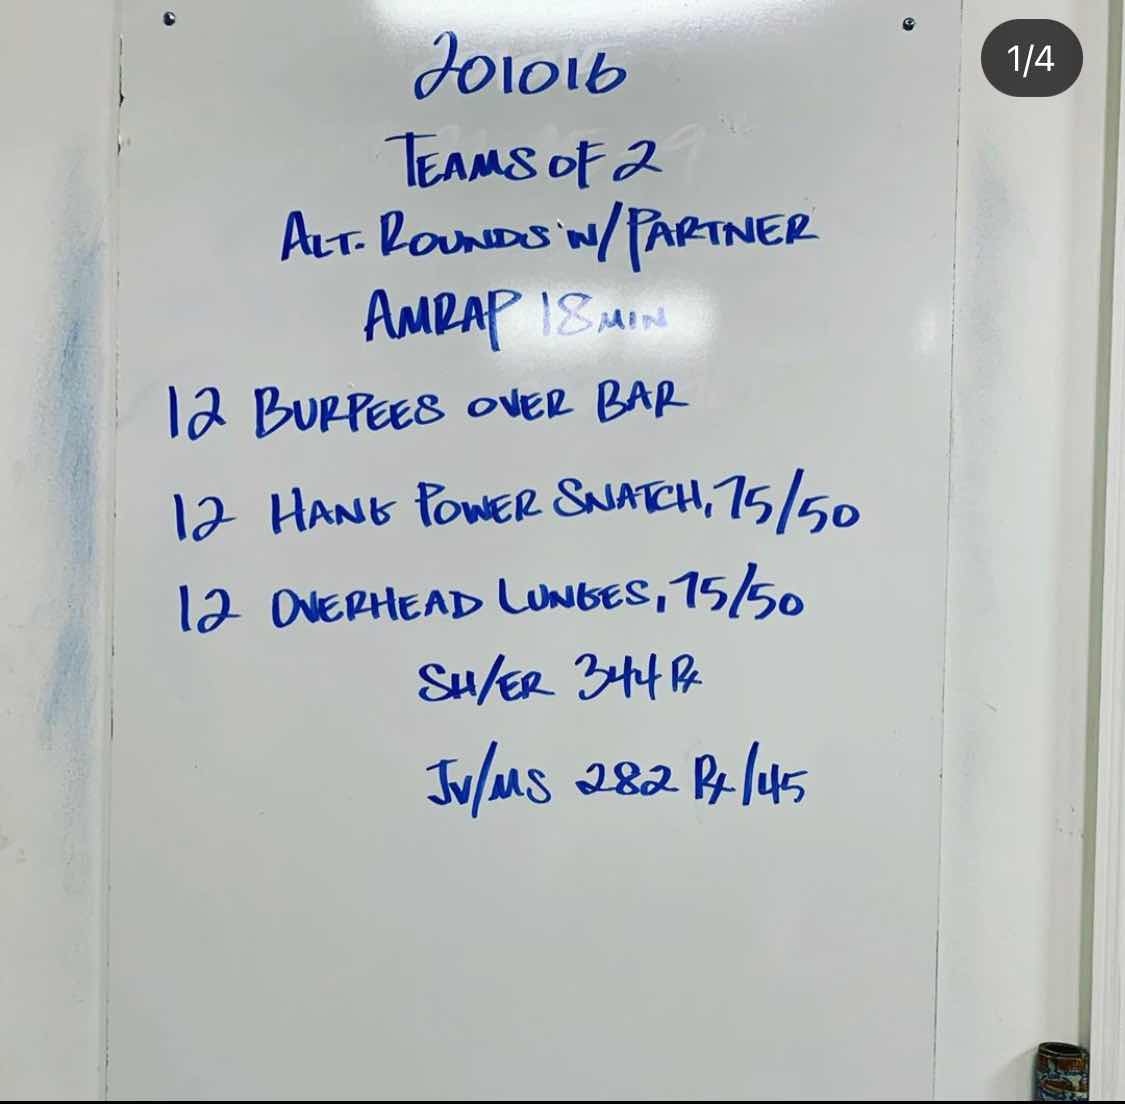 1/4
201016
TEAMS OF 2
ALT. ROUNDS W/PARTNER
AMRAP 18 MIN
12 BURPEES OVER BAR
12 HANG POWER SNATCH, 75/50
12 OVERHEAD LUNGES, 75/50
SH/ER 344 Rx
JV/MS 282 Rx/45